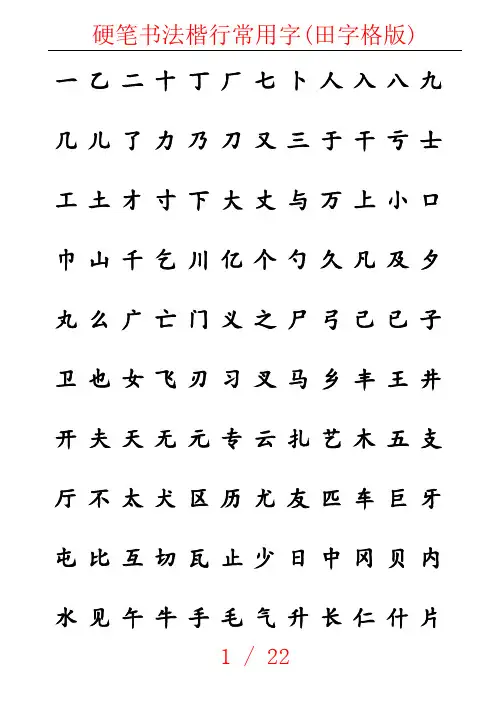 硬笔书法楷行常用字(田字格版)
一乙二十丁厂七卜人入八九
几儿了力乃刀又三于干亏士
工土才寸下大丈与万上小口
巾山千乞川亿个勺久凡及夕
丸么广亡门义之尸弓己已子
卫也女飞刃习叉马乡丰王井
开夫天无元专云扎艺木五支
厅不太犬区历尤友匹车巨牙
屯比互切瓦止少日中冈贝内
水见午牛手毛气升长仁什片
1 / 22